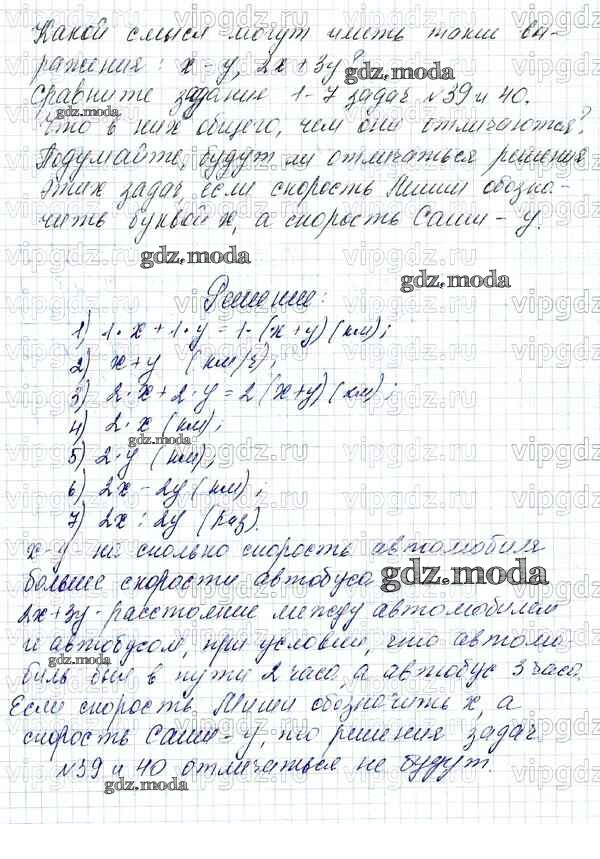 Какой смысл могут иметь такие вы-
ражения: x-y, 2x+3y?
Сравните задания 1-7 задач №39 и 40.
Что в них общего, чем они отличаются?
Подумайте, будут ли отличаться решения
этих задач, если скорость Миши обозна-
чить буквой x, а скорость Саши - y.
Решение:
1) 1·x+1·y=1·(x+y)(км);
2) x+y (км/ч);
3) 2·x+2·y=2(x+y)(км);
4) 2·x (км);
5) 2·y (км);
6) 2x-2y (км);
7) 2x:2y (раз).
x-y на сколько скорость автомобиля
больше скорости автобуса
2x+3y-расстояние между автомобилем
и автобусом, при условии, что автомо-
биль был в пути 2 часа, а автобус 3 часа.
Если скорость Миши обозначить x, а
скорость Саши-y, то решения задач
№39 и 40 отличаться не будут.
gdz.moda
vipgdz.ru